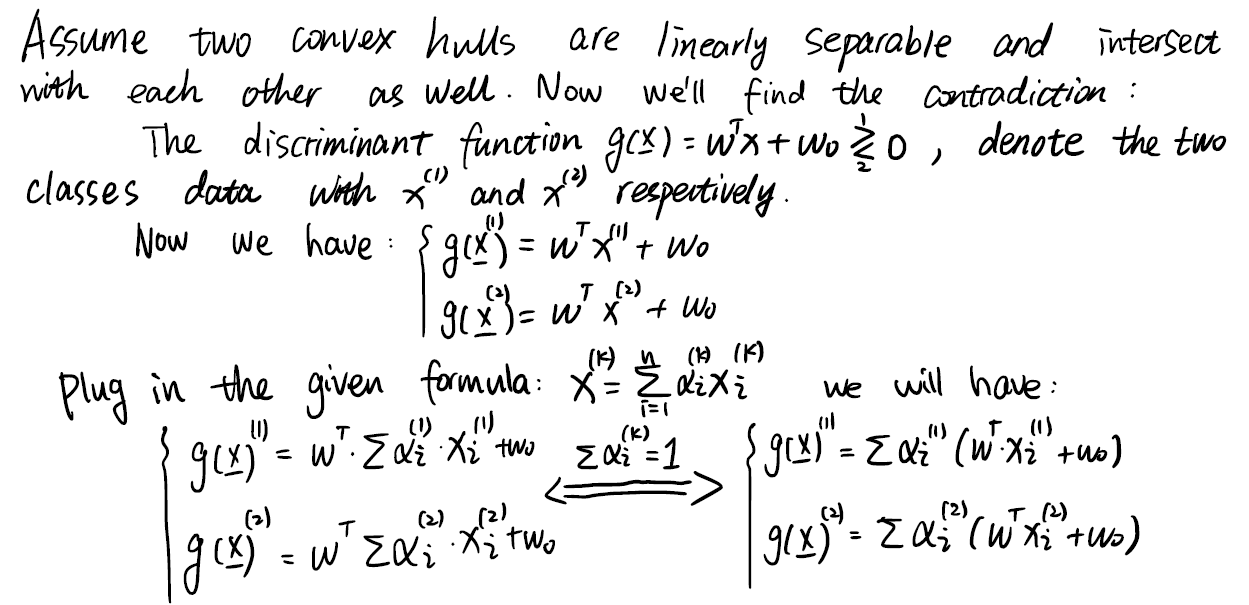 Assume two convex hulls are linearly separable and intersect
with each other as well. Now we'll find the contradiction :
The discriminant function g(x̲) = wᵀx + w₀ ≷ 0 (1 above, 2 below) , denote the two
classes data with x⁽¹⁾ and x⁽²⁾ respectively.
Now we have : { g(x̲⁽¹⁾) = wᵀx⁽¹⁾ + w₀
g(x̲⁽²⁾) = wᵀ x⁽²⁾ + w₀
Plug in the given formula: x⁽ᴷ⁾ = Σᵢ₌₁ⁿ αᵢ⁽ᴷ⁾ xᵢ⁽ᴷ⁾ we will have:
{ g(x̲)⁽¹⁾ = wᵀ · Σ αᵢ⁽¹⁾ · xᵢ⁽¹⁾ + w₀ ⟺ (Σ αᵢ⁽ᴷ⁾ = 1) { g(x̲)⁽¹⁾ = Σ αᵢ⁽¹⁾ (wᵀ · xᵢ⁽¹⁾ + w₀)
g(x̲)⁽²⁾ = wᵀ Σ αᵢ⁽²⁾ · xᵢ⁽²⁾ + w₀ g(x̲)⁽²⁾ = Σ αᵢ⁽²⁾ (wᵀ xᵢ⁽²⁾ + w₀)